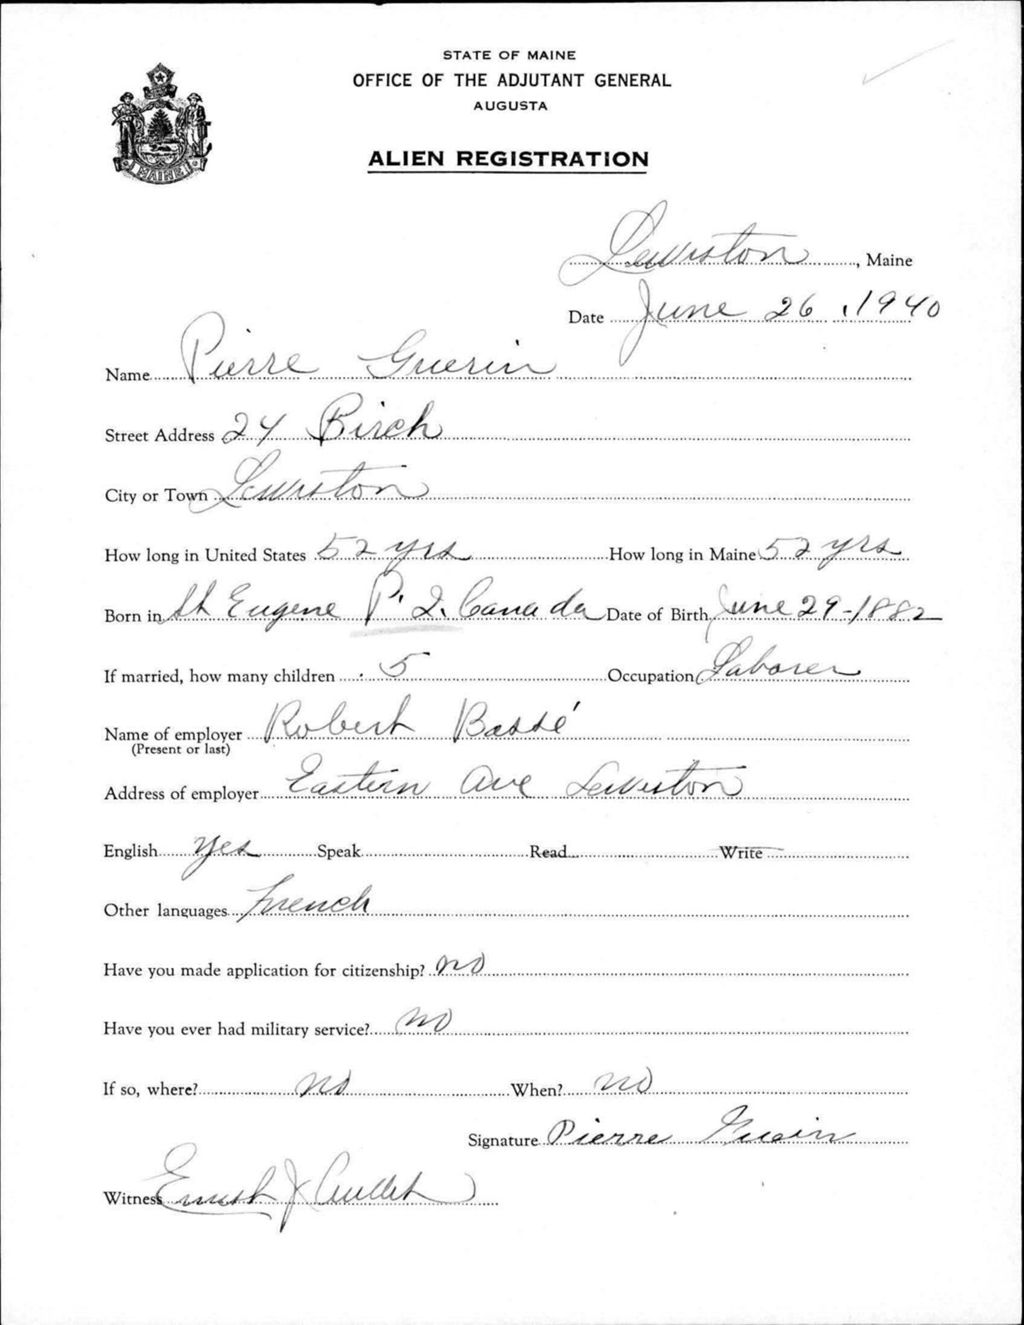 STATE OF MAINE
OFFICE OF THE ADJUTANT GENERAL
AUGUSTA
ALIEN REGISTRATION
MAINE
Lewiston, Maine
Date June 26, 1940
Name Pierre Guerin
Street Address 24 Birch
City or Town Lewiston
How long in United States 52 yrs How long in Maine 52 yrs
Born in St Eugene P.Q. Canada Date of Birth June 29-1882
If married, how many children 5 Occupation Laborer
Name of employer Robert Bassé
(Present or last)
Address of employer Eastern Ave Lewiston
English Yes Speak Read Write
Other languages French
Have you made application for citizenship? no
Have you ever had military service? no
If so, where? no When? no
Signature Pierre Guerin
Witness Ernest J